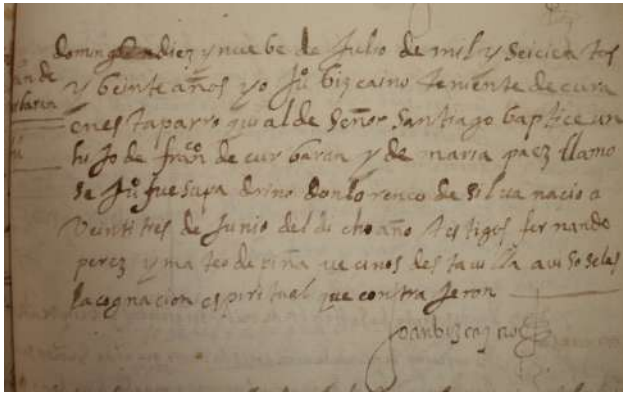 domingo en diez y nuebe de Julio de mil y seicientos
y beinte años yo Juº bizcaino teniente de cura
en esta parroquial de Señor Santiago baptice un
hijo de franco de cur baran y de maria paez llamo
se Juº fue su padrino don lorenco de silua nacio a
Veinti tres de Junio del dicho año testigos fernando
perez y mateo de piña vecinos desta uilla auisoseles
la cognacion espiritual que contrajeron
Joan bizcayno